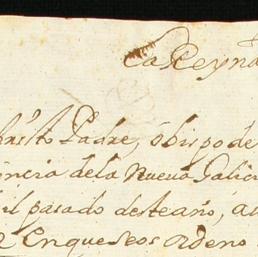 La Reyna
Padre, obispo de
incia dela Nueva Galici
il pasado desteaño, a
Enqueseos ordeno